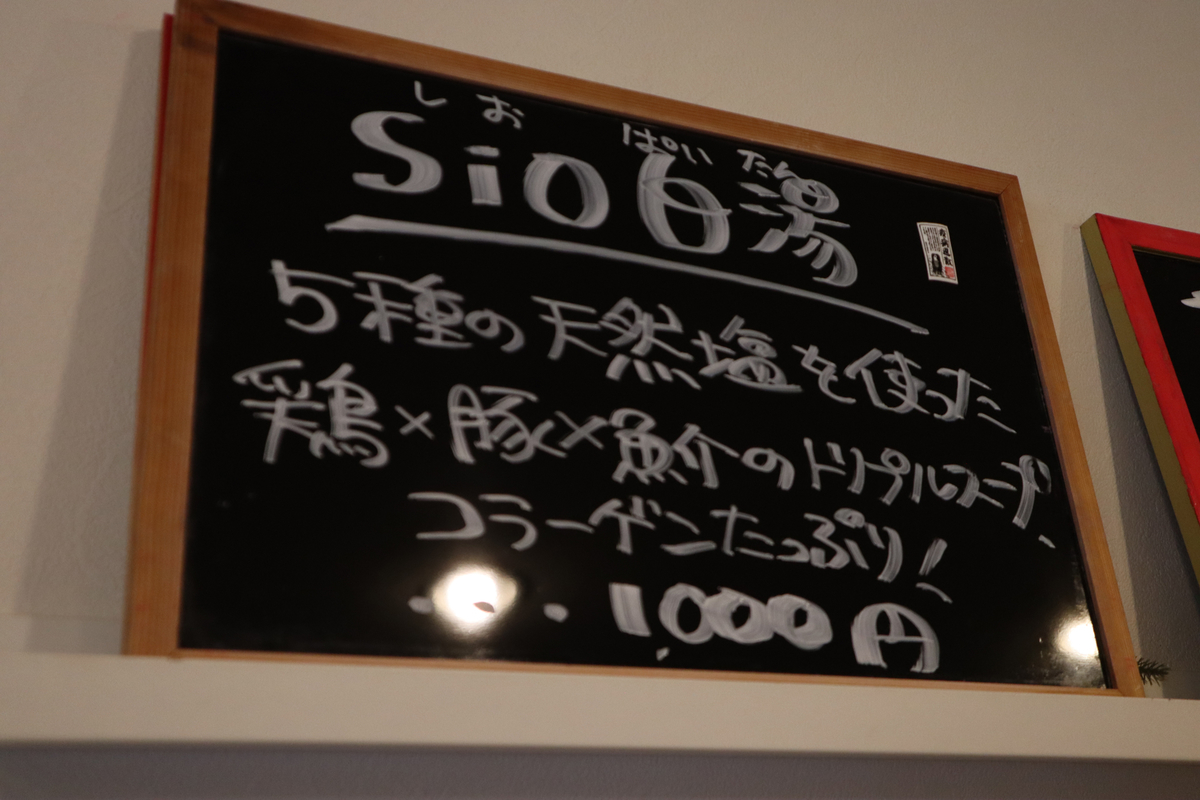 しお ぱいたん
Sio白湯
5種の天然塩を使った
鶏×豚×魚介のトリプルスープ、
コラーゲンたっぷり!
・・・1000円